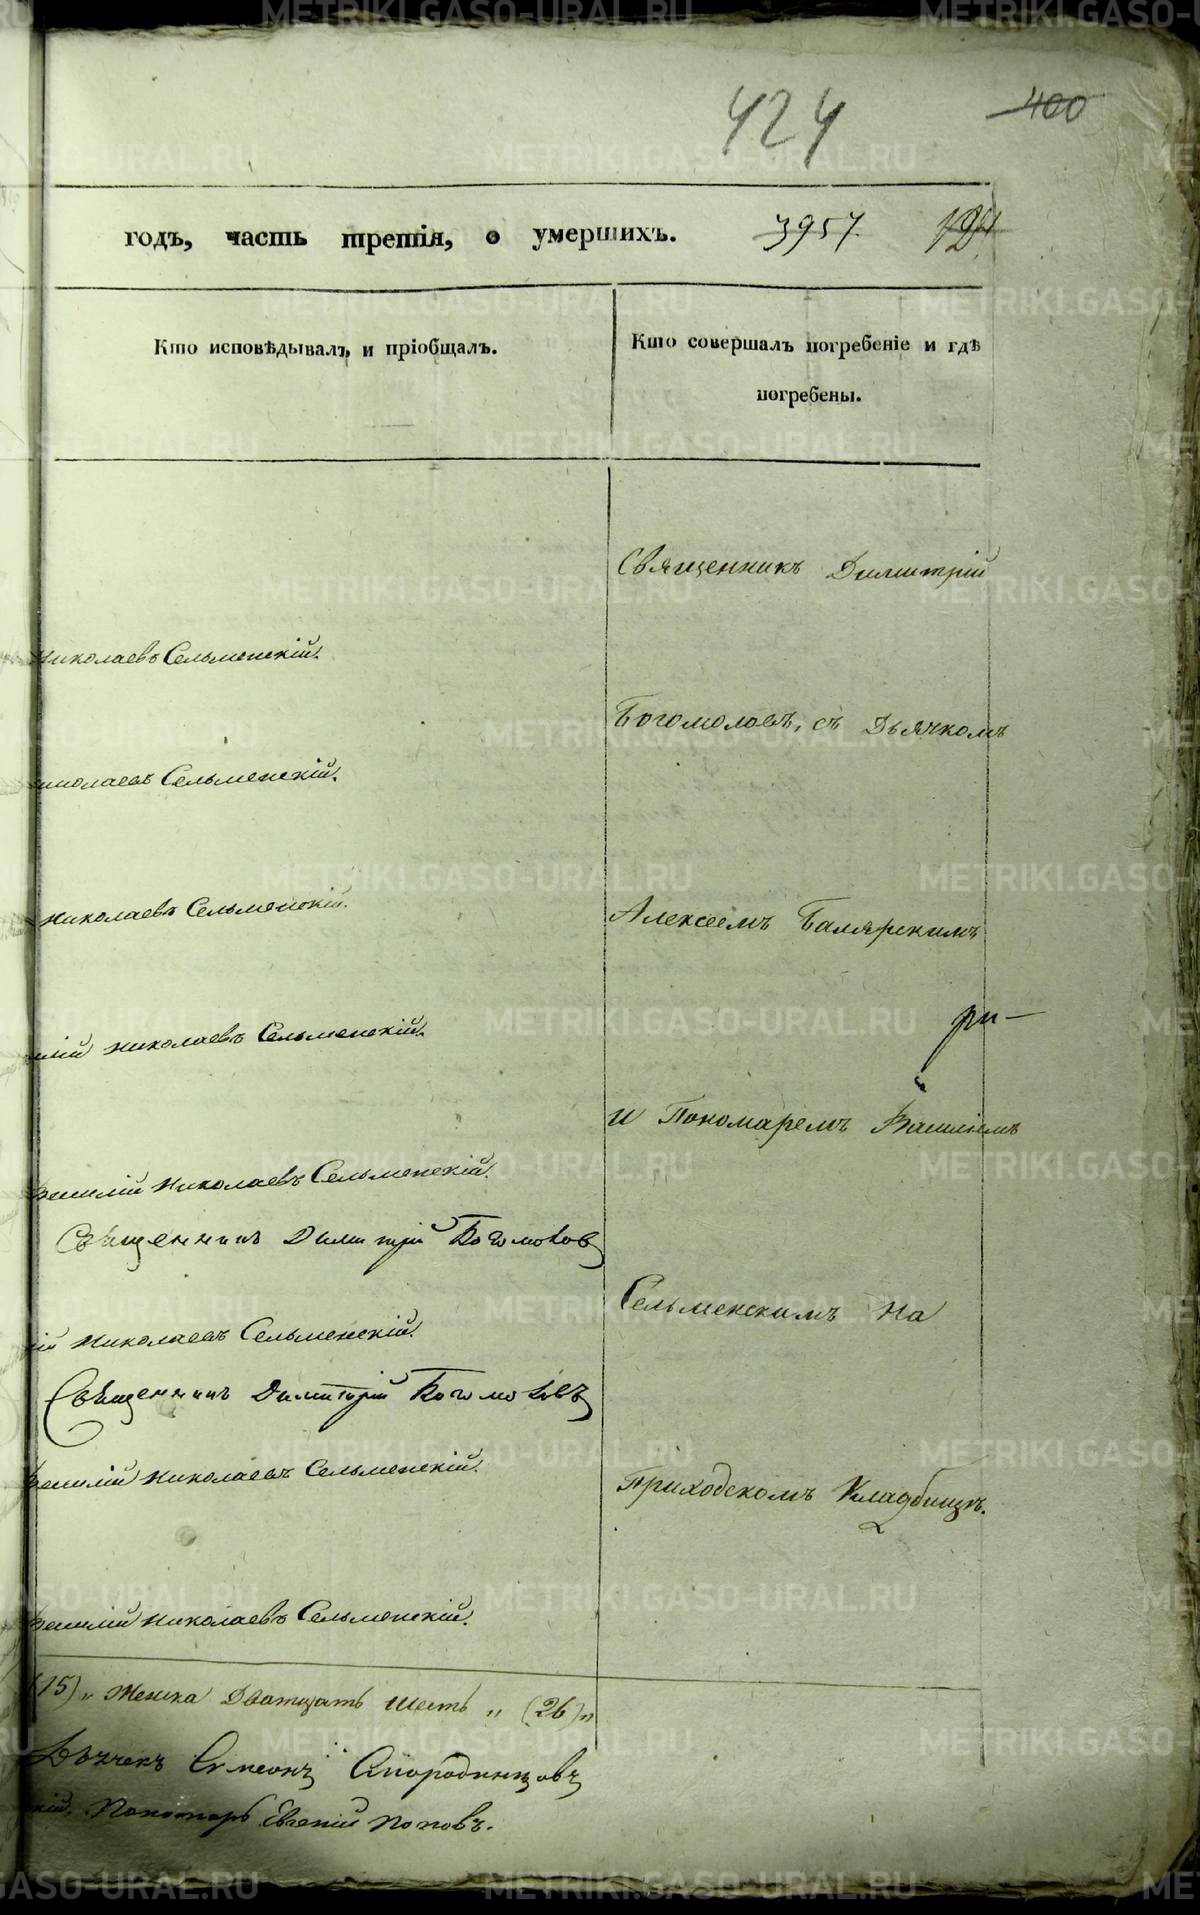 424 400
годъ, часть третія, о умершихъ. 3957.
Кто исповѣдывалъ и пріобщалъ.
Кто совершалъ погребеніе и гдѣ
погребены.
Священникъ Димитрій
Николаевъ Сельменскій.
Богомоловъ, съ Дьячкомъ
Николаевъ Сельменскій.
Николаевъ Сельменскій.
Алексеемъ
Николаевъ Сельменскій.
ри—
и Пономаремъ Василіемъ
Василій Николаевъ Сельменскій.
Священникъ Димитрій Богомолов
Сельменскимъ на
ій Николаевъ Сельменскій.
Священникъ Димитрій Богомоловъ
Василій Николаевъ Сельменскій.
Приходскомъ Кладбищѣ.
Василій Николаевъ Сельменскій.
(15) „ Женска Дватцать шесть „ (26) „
Дьячекъ Симеонъ
кій. Пономарь Евгеній Поповъ.
METRIKI.GASO-URAL.RU